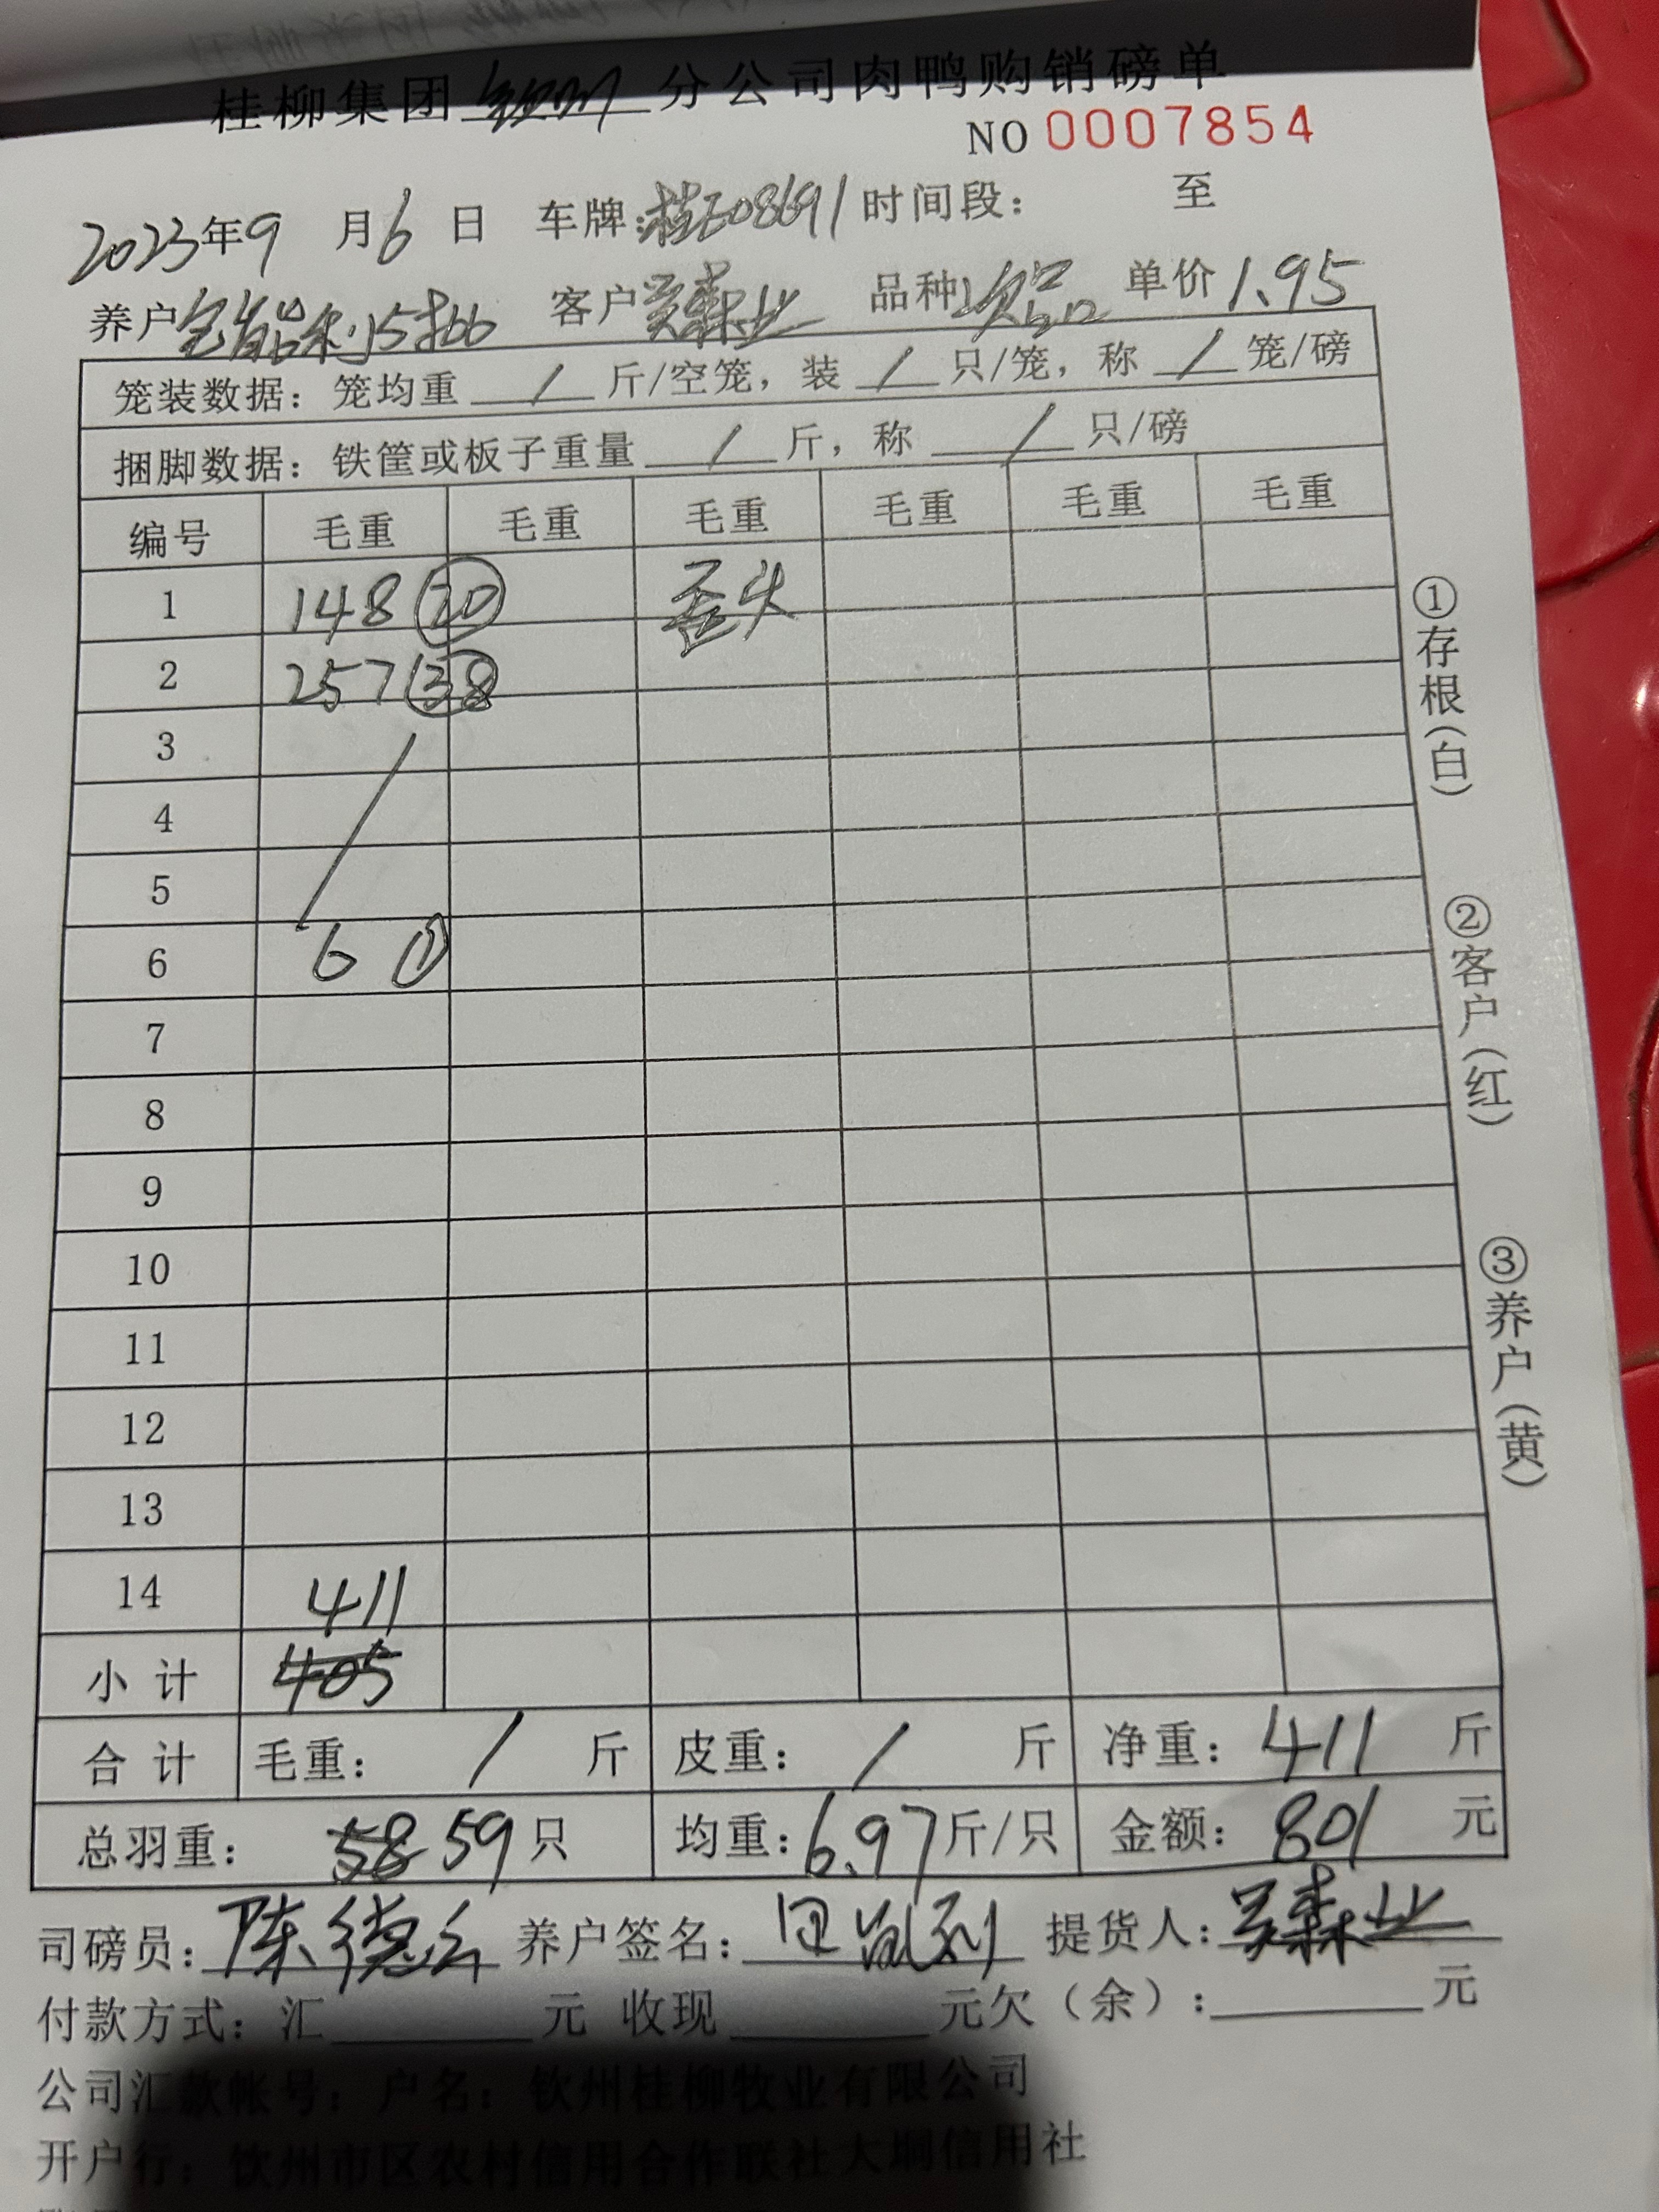 桂柳集团 钦州 分公司肉鸭购销磅单
NO 0007854
2023年9月6日 车牌:桂E08691 时间段: 至
养户 客户 吴森业 品种 次品 单价 1.95
笼装数据: 笼均重 / 斤/空笼, 装 / 只/笼, 称 / 笼/磅
捆脚数据: 铁筐或板子重量 / 斤, 称 / 只/磅
编号 毛重 毛重 毛重 毛重 毛重 毛重
1 148 20 歪头
2 257 38
3 /
4
5
6 6 ①
7
8
9
10
11
12
13
14 411
小计 405
合计 毛重: / 斤 皮重: / 斤 净重: 411 斤
总羽重: 58 59 只 均重: 6.97 斤/只 金额: 801 元
司磅员: 陈德 养户签名: 提货人: 吴森业
付款方式: 汇 元 收现 元欠(余): 元
公司汇款帐号: 户名: 钦州桂柳牧业有限公司
开户行: 钦州市区农村信用合作联社大垌信用社
①存根(白)
②客户(红)
③养户(黄)